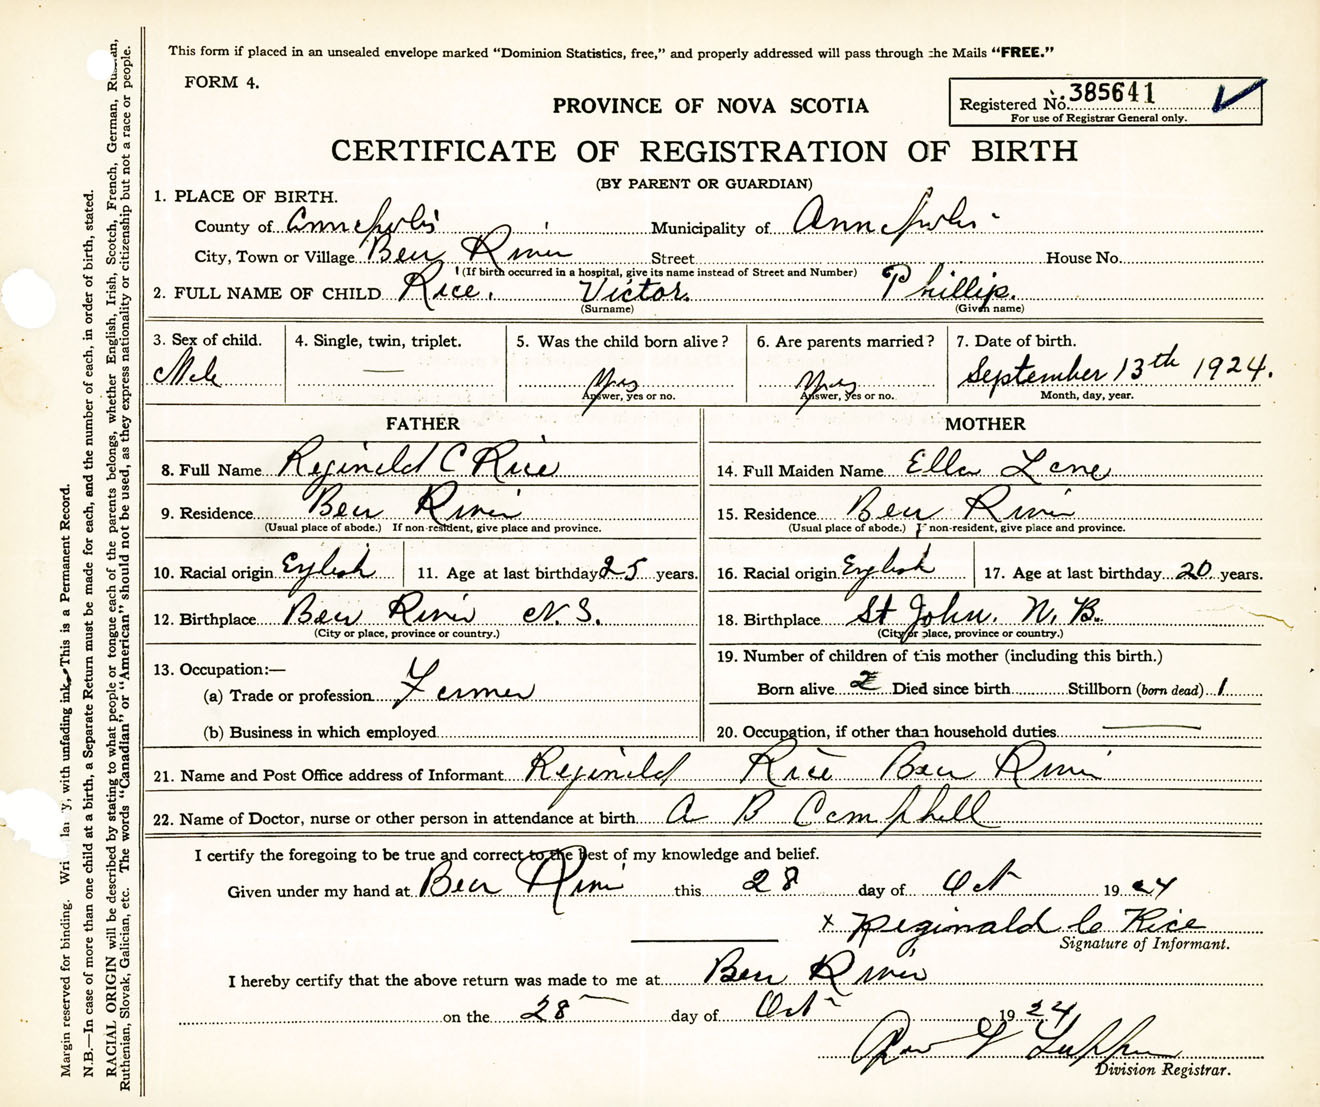 This form if placed in an unsealed envelope marked "Dominion Statistics, free," and properly addressed will pass through the Mails "FREE."
FORM 4.
Registered No. 385641
For use of Registrar General only.
PROVINCE OF NOVA SCOTIA
CERTIFICATE OF REGISTRATION OF BIRTH
(BY PARENT OR GUARDIAN)
1. PLACE OF BIRTH.
County of Annapolis Municipality of Annapolis
City, Town or Village Bear River Street House No.
(If birth occurred in a hospital, give its name instead of Street and Number)
2. FULL NAME OF CHILD Rice. Victor. Phillip.
(Surname) (Given name)
3. Sex of child. 4. Single, twin, triplet. 5. Was the child born alive? 6. Are parents married? 7. Date of birth.
Male — Yes Yes September 13th 1924.
Answer, yes or no. Answer, yes or no. Month, day, year.
FATHER
8. Full Name Reginald C Rice
9. Residence Bear River
(Usual place of abode.) If non-resident, give place and province.
10. Racial origin English 11. Age at last birthday 25 years.
12. Birthplace Bear River N. S.
(City or place, province or country.)
13. Occupation:—
(a) Trade or profession Farmer
(b) Business in which employed
MOTHER
14. Full Maiden Name Ella Lane
15. Residence Bear River
(Usual place of abode.) If non-resident, give place and province.
16. Racial origin English 17. Age at last birthday 20 years.
18. Birthplace St John. N. B.
(City or place, province or country.)
19. Number of children of this mother (including this birth.)
Born alive 2 Died since birth Stillborn (born dead) 1
20. Occupation, if other than household duties —
21. Name and Post Office address of Informant Reginald Rice Bear River
22. Name of Doctor, nurse or other person in attendance at birth A B Campbell
I certify the foregoing to be true and correct to the best of my knowledge and belief.
Given under my hand at Bear River this 28 day of Oct 1924
x Reginald C Rice
Signature of Informant.
I hereby certify that the above return was made to me at Bear River
on the 28 day of Oct 1924
Division Registrar.
Margin reserved for binding. Write plainly, with unfading ink—This is a Permanent Record.
N.B.—In case of more than one child at a birth, a Separate Return must be made for each, and the number of each, in order of birth, stated.
RACIAL ORIGIN will be described by stating to what people or tongue each of the parents belongs, whether English, Irish, Scotch, French, German, Russian,
Ruthenian, Slovak, Galician, etc. The words "Canadian" or "American" should not be used, as they express nationality or citizenship but not a race or people.